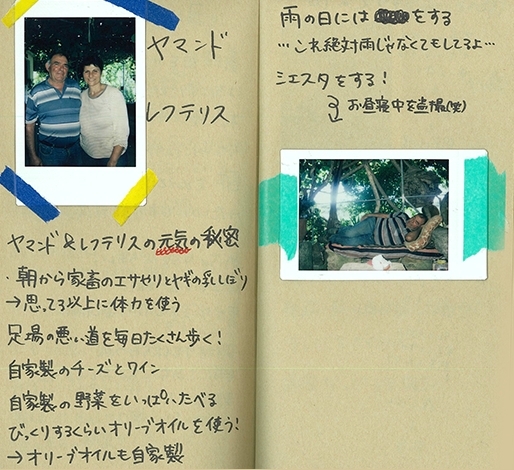 ヤマンド
レフテリス
ヤマンド&レフテリスの元気の秘密
・朝から家畜のエサやりとヤギの乳しぼり
→思ってる以上に体力を使う
足場の悪い道を毎日たくさん歩く!
自家製のチーズとワイン
自家製の野菜をいっぱいたべる
びっくりするくらいオリーブオイルを使う!
→オリーブオイルも自家製
雨の日には をする
…これ絶対雨じゃなくてもしてるよ…
シエスタをする!
お昼寝中を盗撮(笑)